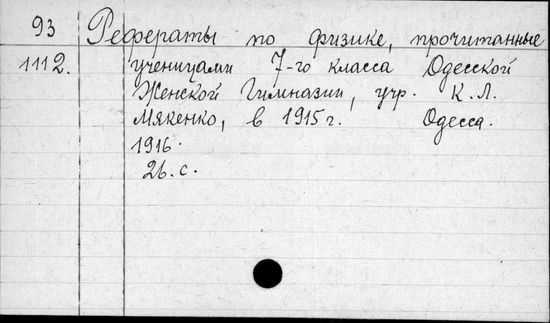 93 Рефераты по физике, прочитанные
1112. ученицами 7-го класса Одесской
Женской Гимназии, учр. К.Л.
Мякенко, в 1915 г. Одесса.
1916.
26.с.